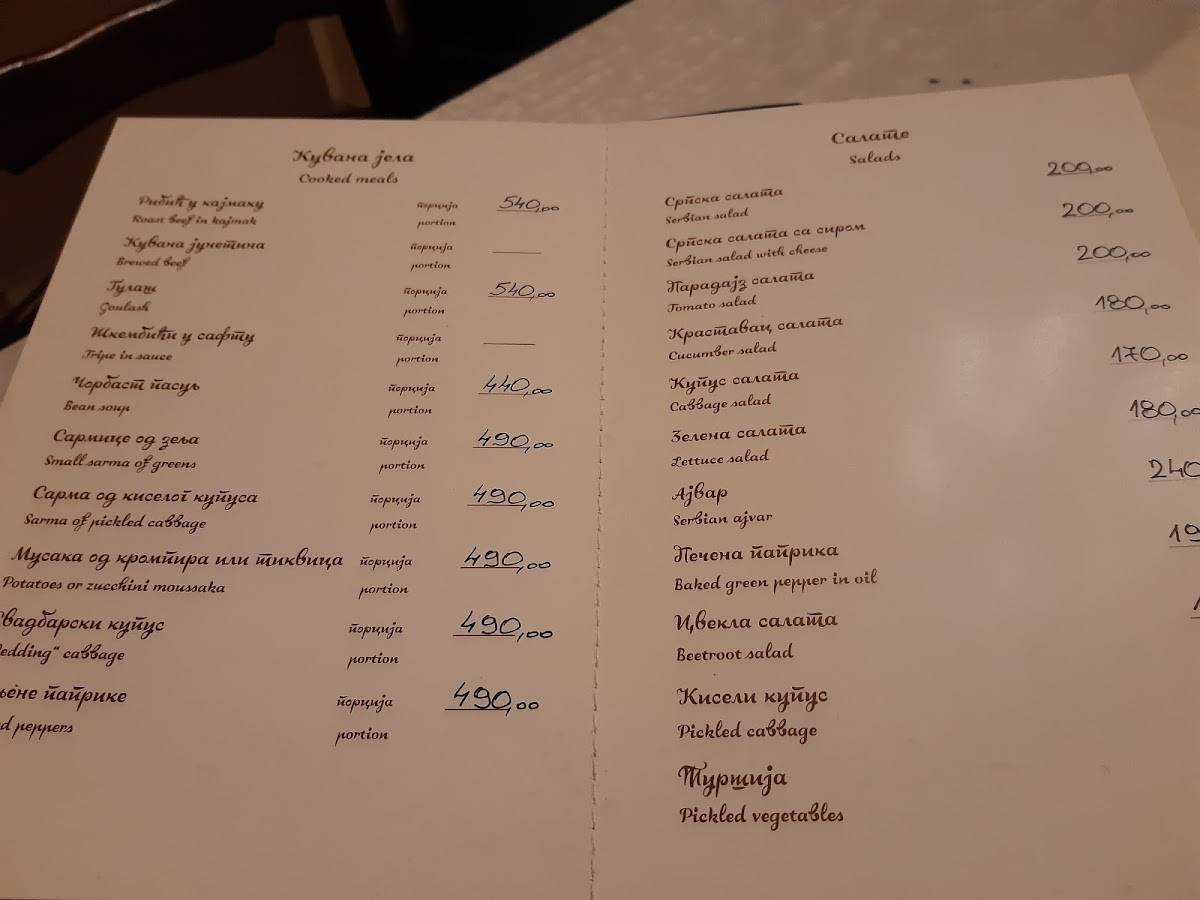 Кувана јела
Cooked meals
Рибић у кајмаку порција 540,00
Roast beef in kajmak portion
Кувана јунетина порција
Brewed beef portion
Гулаш порција 540,00
Goulash portion
Шкембићи у сафту порција
Tripe in sauce portion
Чорбаст пасуљ порција 440,00
Bean soup portion
Сармице од зеља порција 490,00
Small sarma of greens portion
Сарма од киселог купуса порција 490,00
Sarma of pickled cabbage portion
Мусака од кромпира или тиквица порција 490,00
Potatoes or zucchini moussaka portion
Свадбарски купус порција 490,00
edding“ cabbage portion
паприке порција 490,00
peppers portion
Салате
Salads
Српска салата 200,00
Serbian salad
Српска салата са сиром 200,00
Serbian salad with cheese
Парадајз салата 200,00
Tomato salad
Краставац салата 180,00
Cucumber salad
Купус салата 170,00
Cabbage salad
Зелена салата 180,00
Lettuce salad
Ајвар 240
Serbian ajvar
Печена паприка 19
Baked green pepper in oil
Цвекла салата
Beetroot salad
Кисели купус
Pickled cabbage
Туршија
Pickled vegetables